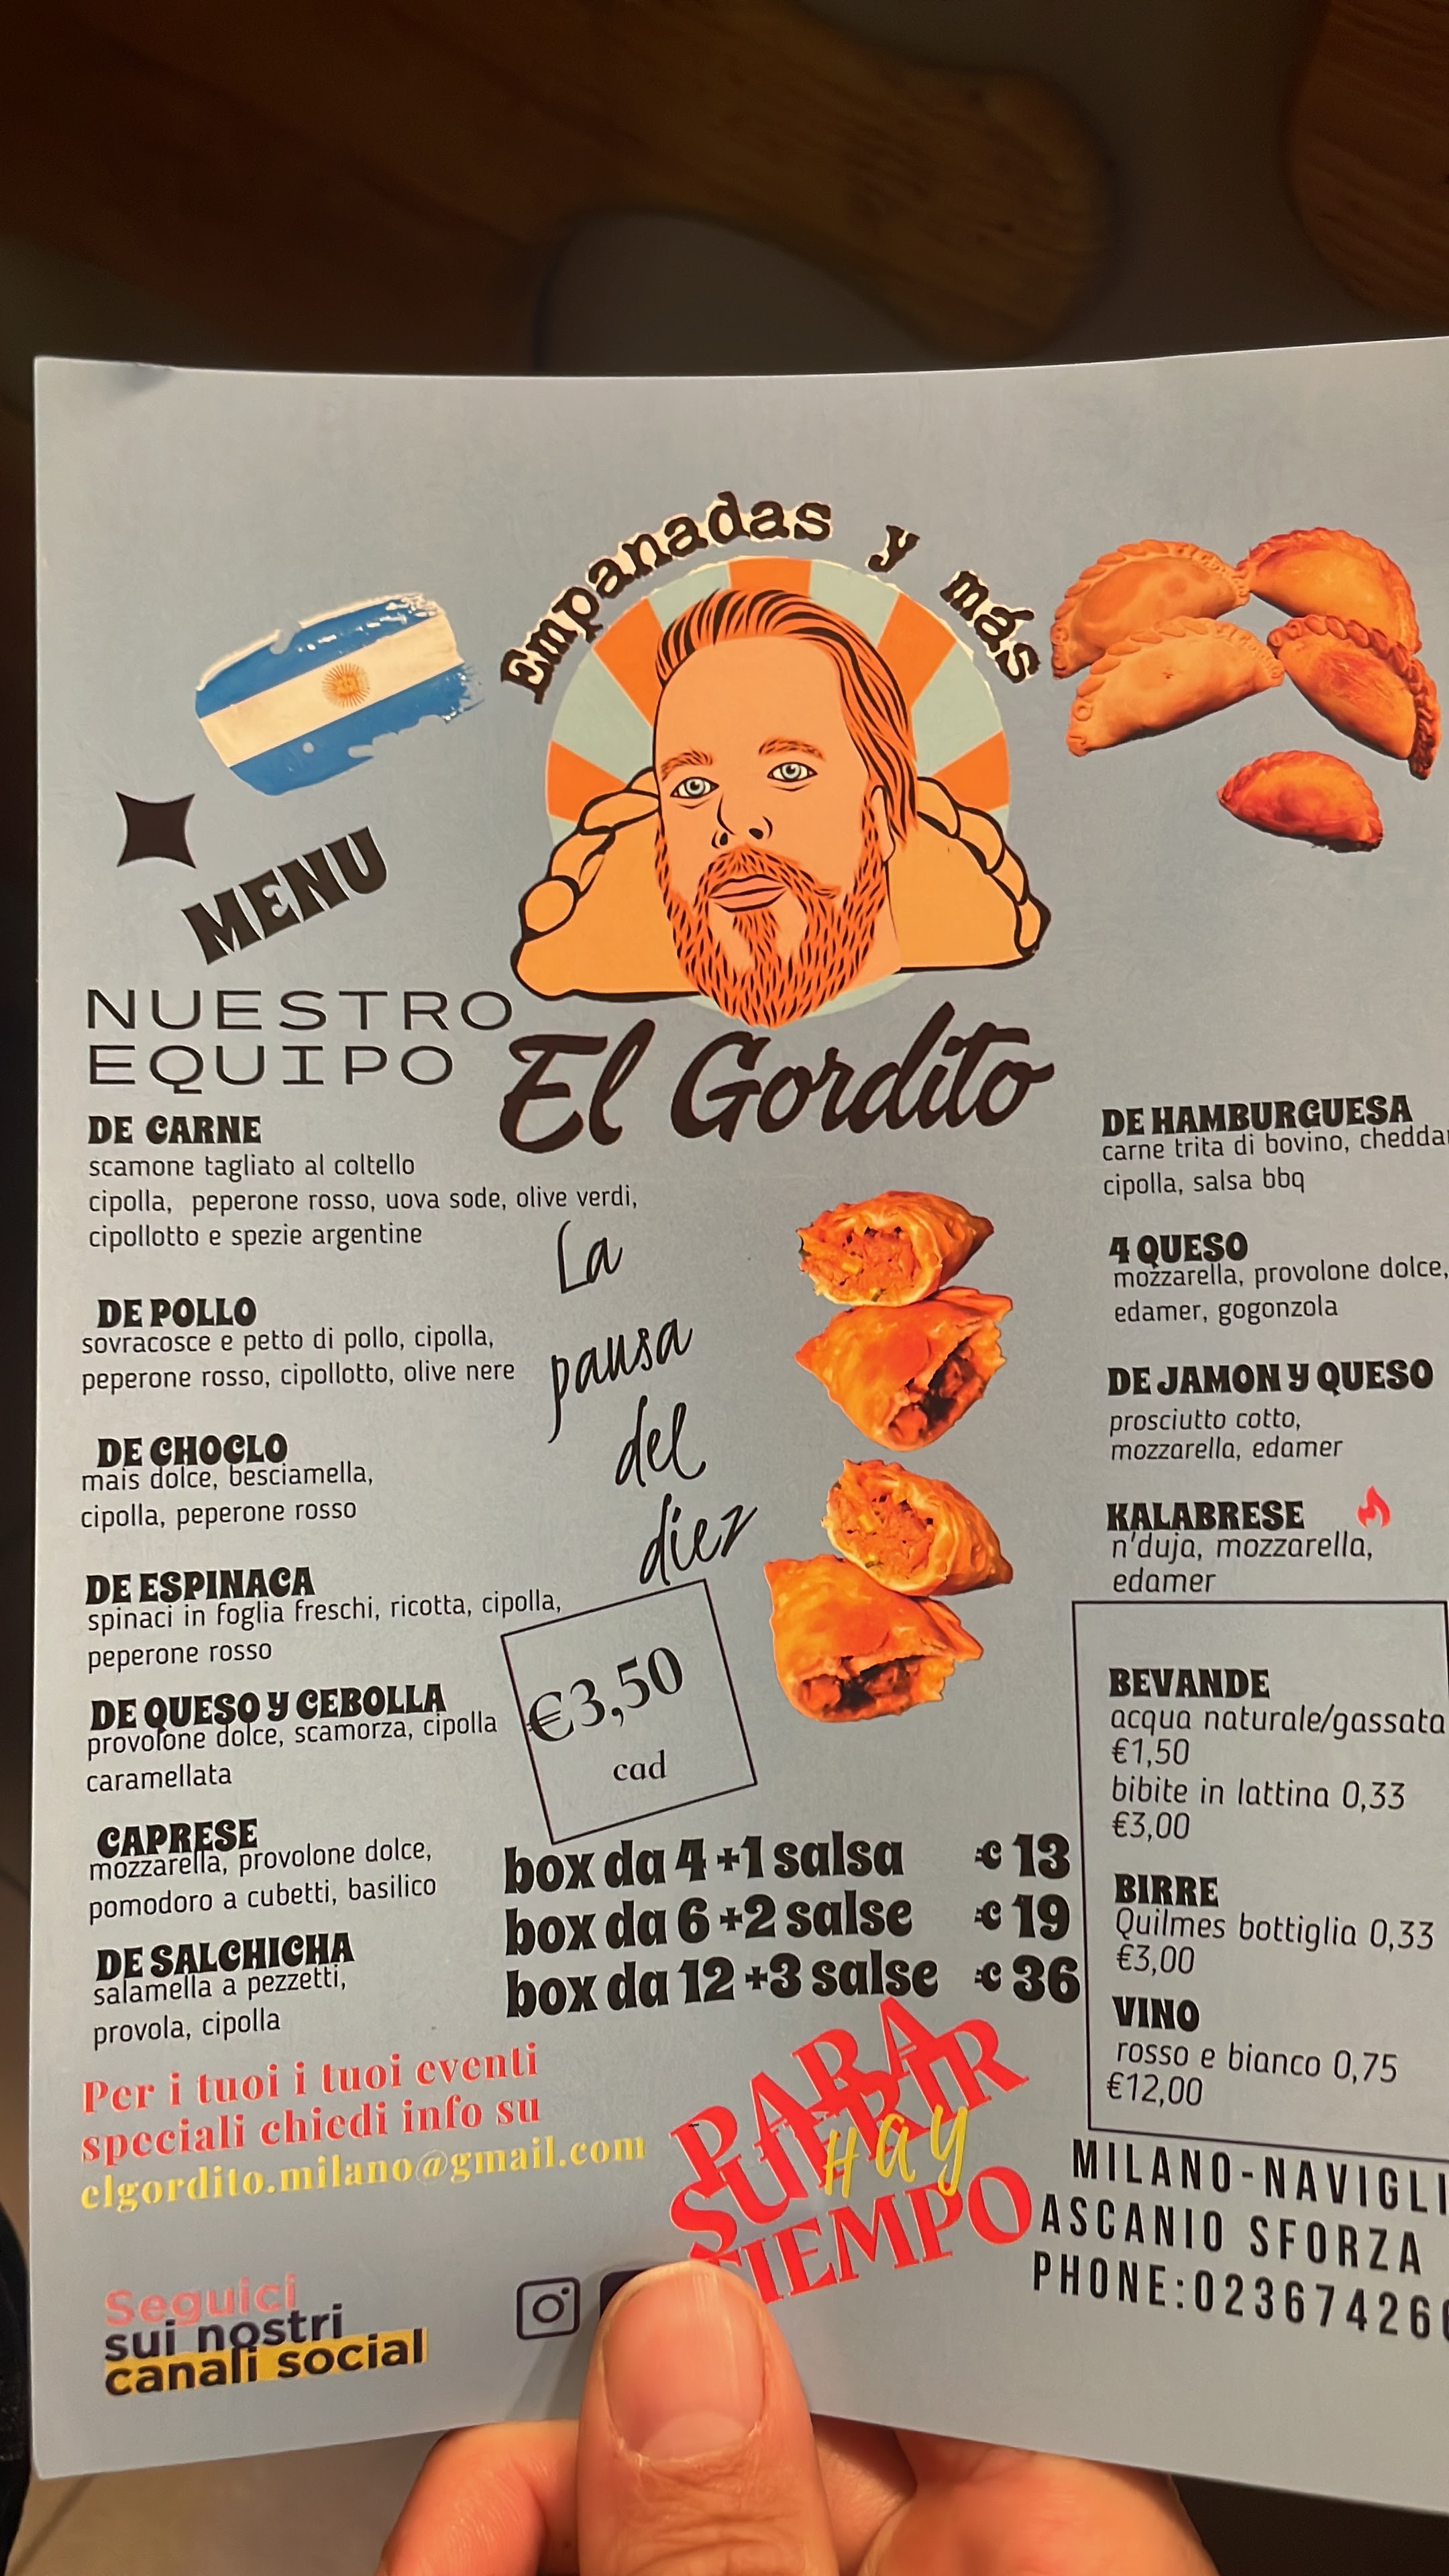 Empanadas y más
MENU
El Gordito
NUESTRO
EQUIPO
DE CARNE
scamone tagliato al coltello
cipolla, peperone rosso, uova sode, olive verdi,
cipollotto e spezie argentine
DE POLLO
sovracosce e petto di pollo, cipolla,
peperone rosso, cipollotto, olive nere
DE CHOCLO
mais dolce, besciamella,
cipolla, peperone rosso
DE ESPINACA
spinaci in foglia freschi, ricotta, cipolla,
peperone rosso
DE QUESO Y CEBOLLA
provolone dolce, scamorza, cipolla
caramellata
CAPRESE
mozzarella, provolone dolce,
pomodoro a cubetti, basilico
DE SALCHICHA
salamella a pezzetti,
provola, cipolla
La
pausa
del
diez
€3,50
cad
box da 4 +1 salsa € 13
box da 6 +2 salse € 19
box da 12 +3 salse € 36
DE HAMBURGUESA
carne trita di bovino, cheddar
cipolla, salsa bbq
4 QUESO
mozzarella, provolone dolce,
edamer, gogonzola
DE JAMON Y QUESO
prosciutto cotto,
mozzarella, edamer
KALABRESE
n'duja, mozzarella,
edamer
BEVANDE
acqua naturale/gassata
€1,50
bibite in lattina 0,33
€3,00
BIRRE
Quilmes bottiglia 0,33
€3,00
VINO
rosso e bianco 0,75
€12,00
Per i tuoi i tuoi eventi
speciali chiedi info su
elgordito.milano@gmail.com
PARA
SUFRIR
HAY
TIEMPO
MILANO-NAVIGLI
ASCANIO SFORZA
PHONE:02367426
Seguici
sui nostri
canali social